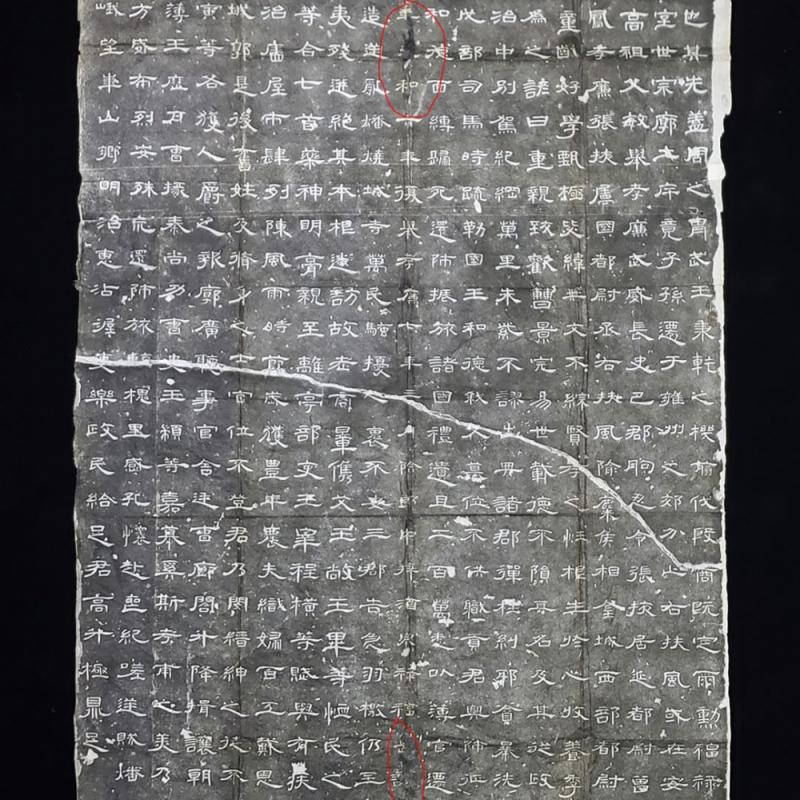 也其先蓋周之胄武王秉乾之機翦伐殷商既定爾勳福祿
室世宗廓土斥竟子孫遷于雍州之郊分止右扶風或在安
高祖父敏舉孝廉武威長史巴郡朐忍令張掖居延都尉曾
鳳孝廉張掖屬國都尉丞右扶風隃麋侯相金城西部都尉
童齔好學甄極毖緯無文不綜賢孝之性根生於心收養季
為之諺曰重親致歡曹景完易世載德不隕其名及其從政
治中別駕紀綱萬里朱紫不謬出典諸郡彈枉糾邪貪暴洗
戊部司馬時疏勒國王和德弒父篡位不供職貢君興師征
和德面縛歸死還師振旅諸國禮遺且二百萬悉以簿官遷
年光和六年復舉孝廉七年三月除郎中拜酒泉祿福長訞
造逆亂燔燒城寺萬民騷擾人裹不安三郡告急羽檄仍至
夷殘迸絕其本根遂訪故老商量儁艾王敞王畢等恤民之
等合七首藥神明膏親至離亭部吏王宰程橫等賦與有疾
治廧屋市肆列陳風雨時節歲獲豐年農夫織婦百工戴恩
城郭是後舊姓及脩身之士官位不登君乃閔縉紳之徒不
寅等各獲人爵之報廓廣聽事官舍廷曹廊閤升降揖讓朝
簿王歷戶曹掾秦尚功曹史王顓等嘉慕奚斯考甫之美乃
方盛布烈安殊荒還師旅臨槐里感孔懷赴喪紀嗟逆賊燔
峨望華山鄉明治惠沾渥吏樂政民給足君高升極鼎足